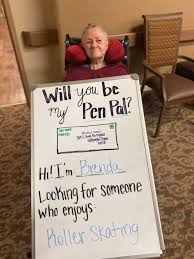 Will you be
my Pen Pal?
Hi! I'm Brenda
Looking for someone
who enjoys:
Roller Skating